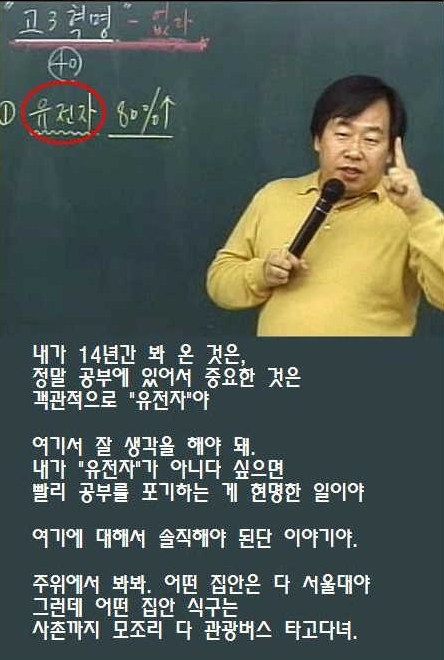 "고3혁명" - 없다
40
① 유전자 80%↑
내가 14년간 봐 온 것은,
정말 공부에 있어서 중요한 것은
객관적으로 "유전자"야
여기서 잘 생각을 해야 돼.
내가 "유전자"가 아니다 싶으면
빨리 공부를 포기하는 게 현명한 일이야
여기에 대해서 솔직해야 된단 이야기야.
주위에서 봐봐. 어떤 집안은 다 서울대야
그런데 어떤 집안 식구는
사촌까지 모조리 다 관광버스 타고다녀.